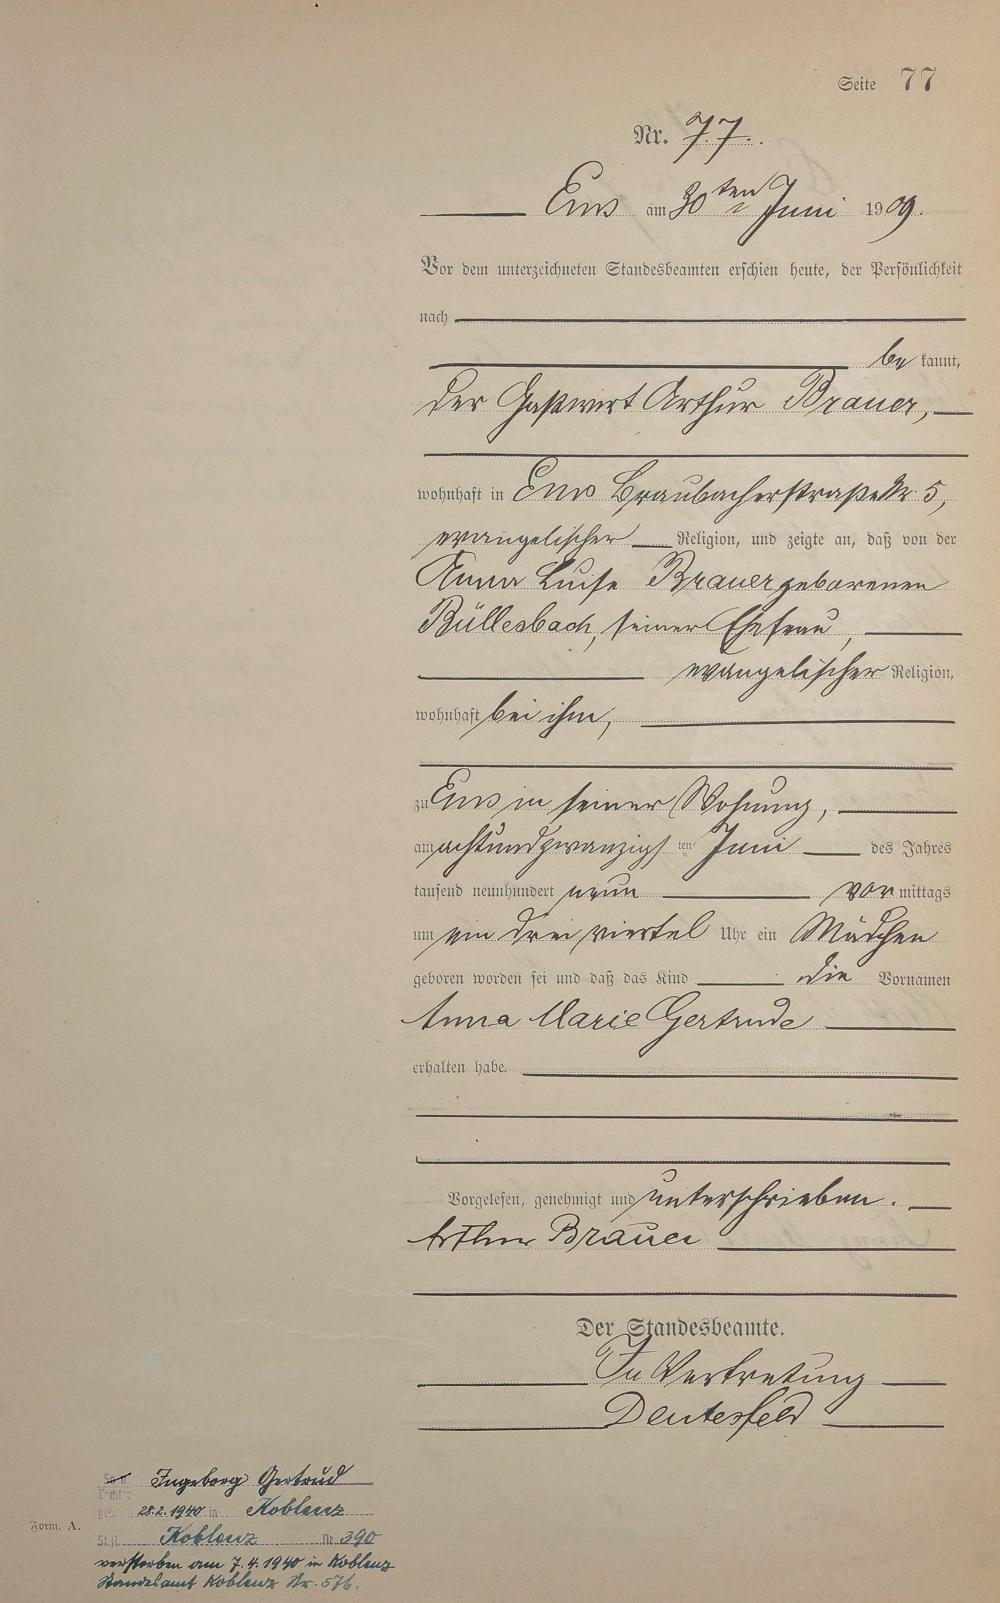 Seite 77
Nr. 77.
Ems am 30ten Juni 1909.
Vor dem unterzeichneten Standesbeamten erschien heute, der Persönlichkeit
nach
be kannt,
der Gastwirt Arthur Brauer,
wohnhaft in Ems Braubacherstraße Nr. 5,
evangelischer Religion, und zeigte an, daß von der
Anna Luise Brauer geborenen
Büllesbach, seiner Ehefrau,
evangelischer Religion,
wohnhaft bei ihm,
zu Ems in seiner Wohnung,
am achtundzwanzigsten Juni des Jahres
tausend neunhundert neun vor mittags
um ein drei viertel Uhr ein Mädchen
geboren worden sei und daß das Kind die Vornamen
Anna Marie Gertrude
erhalten habe.
Vorgelesen, genehmigt und unterschrieben.
Arthur Brauer
Der Standesbeamte.
In Vertretung
Deutesfeld
Sohn Ingeborg Gertrud
Tochter
geb. 28.2.1940 in Koblenz
St.A. Koblenz Nr 390
Form. A.
verstorben am 7.4.1940 in Koblenz
Standesamt Koblenz Nr. 576.